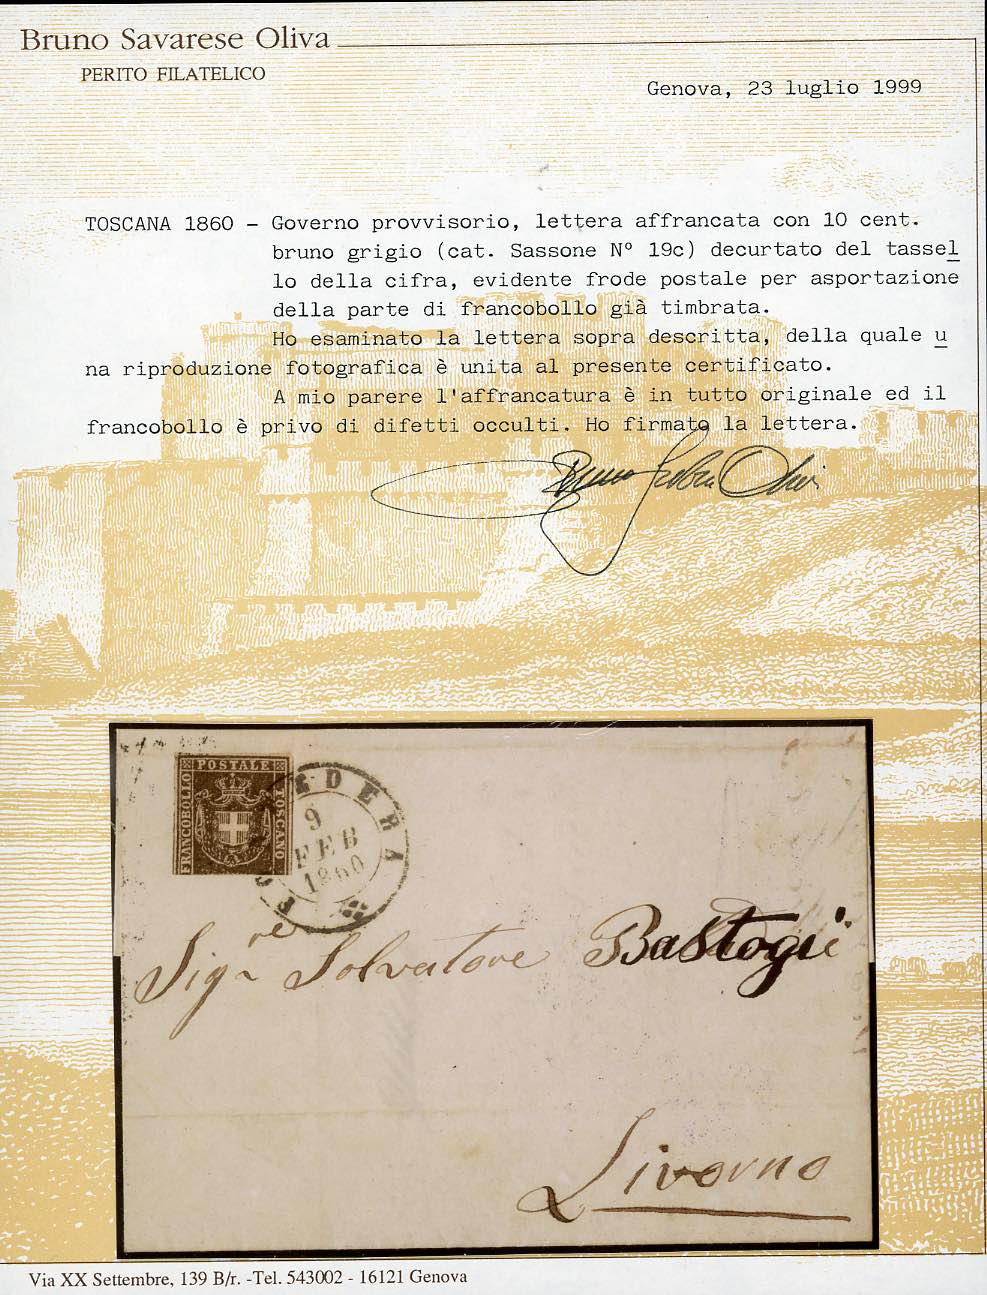 Bruno Savarese Oliva
PERITO FILATELICO
Genova, 23 luglio 1999
TOSCANA 1860 - Governo provvisorio, lettera affrancata con 10 cent.
bruno grigio (cat. Sassone N° 19c) decurtato del tassel
lo della cifra, evidente frode postale per asportazione
della parte di francobollo già timbrata.
Ho esaminato la lettera sopra descritta, della quale u
na riproduzione fotografica è unita al presente certificato.
A mio parere l'affrancatura è in tutto originale ed il
francobollo è privo di difetti occulti. Ho firmato la lettera.
Bruno Savarese Oliva
POSTALE
FRANCOBOLLO
TOSCANO
9
FEB
1860
Sigre Salvatore Bastogi
Livorno
Via XX Settembre, 139 B/r. -Tel. 543002 - 16121 Genova